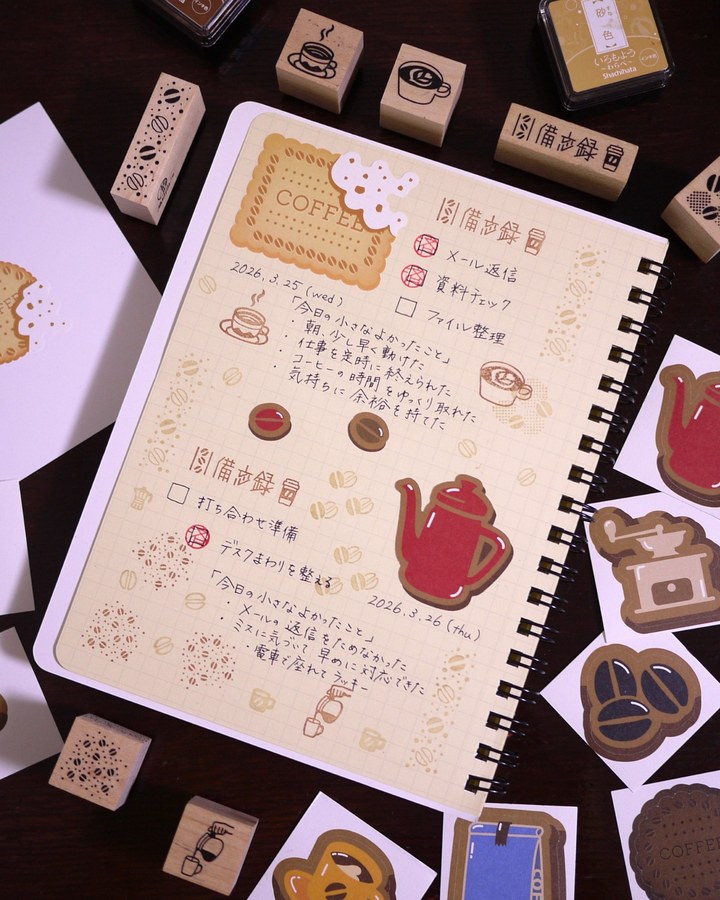 砂色
いろもよう
〜わらべ〜
Shachihata
備忘録
COFFEE
備忘録
メール返信
資料チェック
ファイル整理
2026.3.25 (wed)
「今日の小さなよかったこと」
・朝、少し早く動けた
・仕事を定時に終えられた
・コーヒーの時間をゆっくり取れた
・気持ちに余裕を持てた
備忘録
打ち合わせ準備
デスクまわりを整える
2026.3.26 (thu)
「今日の小さなよかったこと」
・メールの返信をためなかった
・ミスに気づいて早めに対応できた
・電車で座れてラッキー
COFFEE